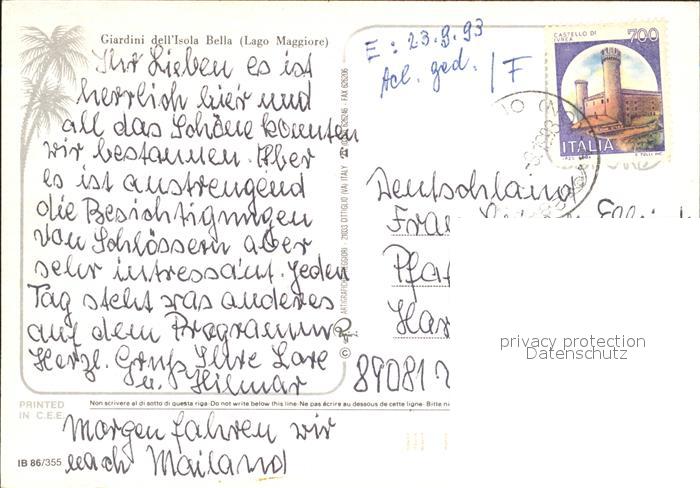 Giardini dell'Isola Bella (Lago Maggiore)
Ihr Lieben es ist
herrlich hier und
all das Schöne konnten
wir bestaunen. Aber
es ist anstrengend
die Besichtigungen
von Schlössern aber
sehr intressant. Jeden
Tag steht was anderes
auf dem Programm
Herzl. Gruß Ihre Lore
u. Hilmar
Morgen fahren wir
nach Mailand
PRINTED
IN C.E.E.
IB 86/355
Non scrivere al di sotto di questa riga · Do not write below this line · Ne pas écrire au dessous de cette ligne ·
21033 CITTIGLIO (VA) ITALY
FAX 626206
©
E: 23.9.93
ged. / F
CASTELLO DI
IVREA
700
ITALIA
Deutschland
privacy protection
Datenschutz